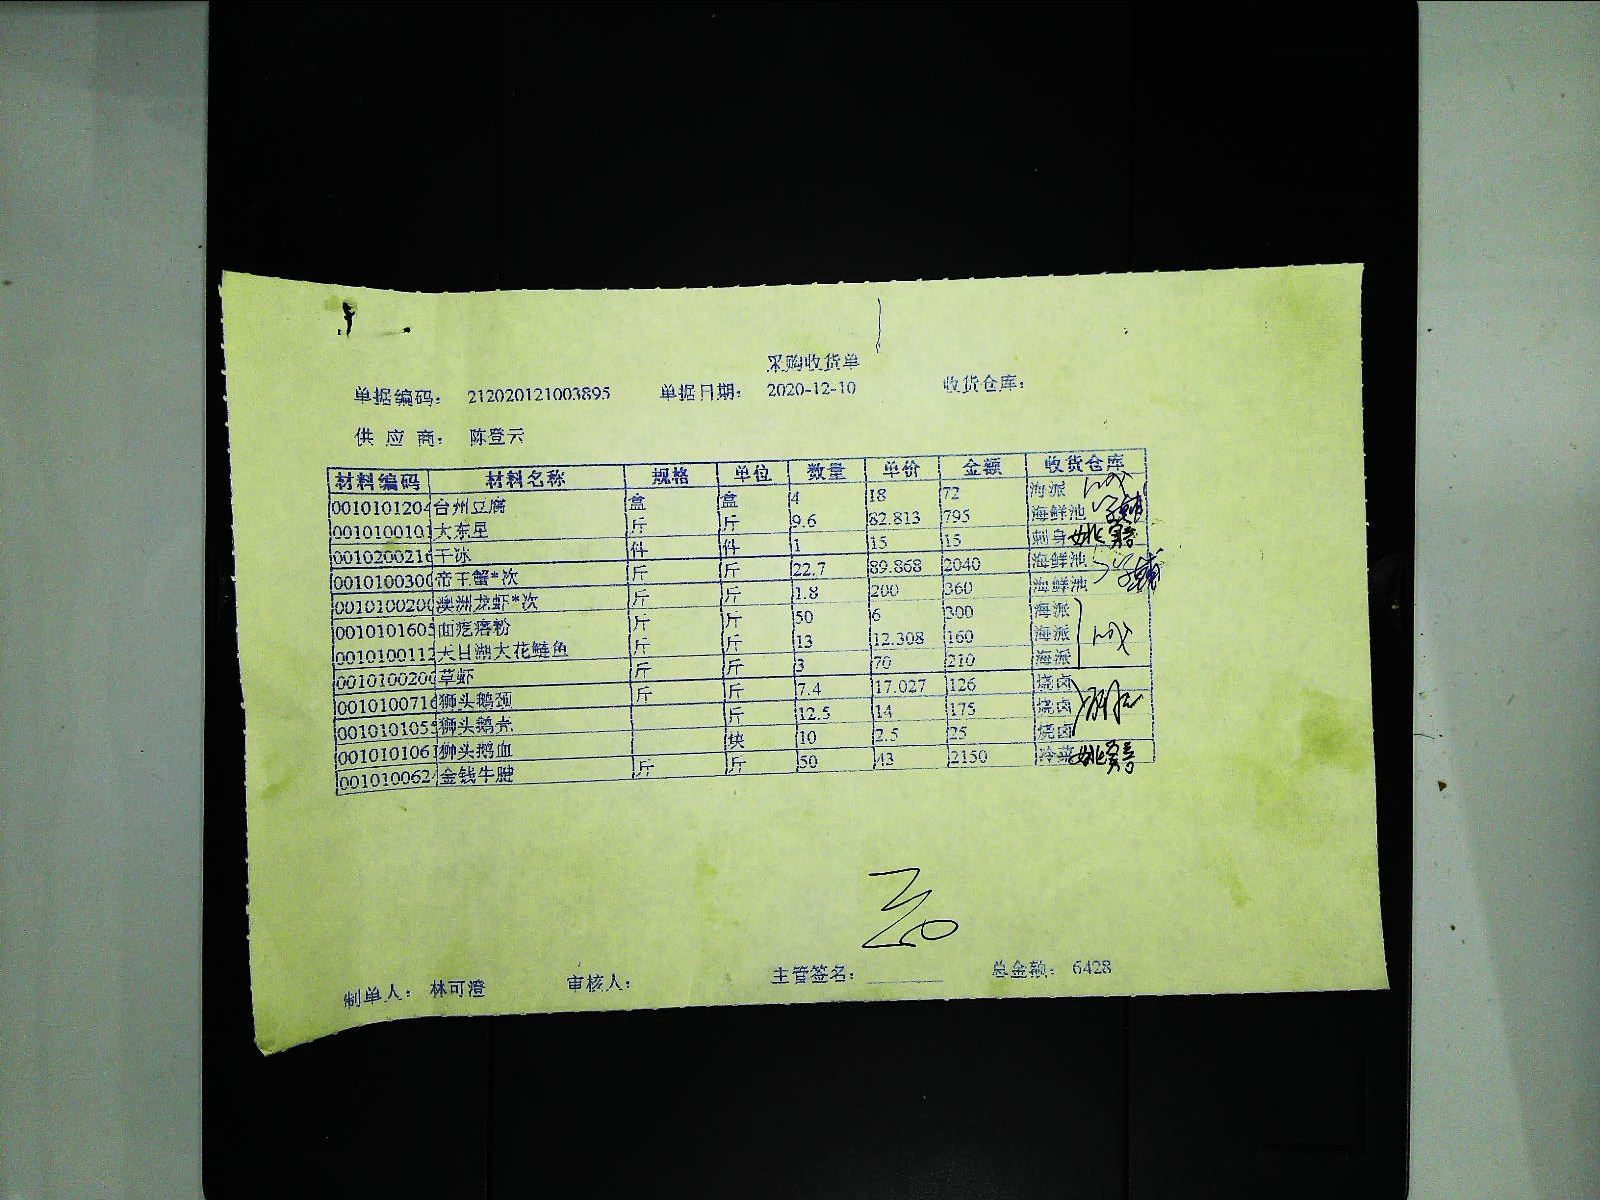 采购收货单
单据编码： 212020121003895 单据日期： 2020-12-10 收货仓库：
供 应 商： 陈登云
材料编码 材料名称 规格 单位 数量 单价 金额 收货仓库
0010101204 台州豆腐 盒 盒 4 18 72 海派
0010100101 大东星 斤 斤 9.6 82.813 795 海鲜池
0010200216 干冰 件 件 1 15 15 刺身
0010100300 帝王蟹*次 斤 斤 22.7 89.868 2040 海鲜池
0010100200 澳洲龙虾*次 斤 斤 1.8 200 360 海鲜池
0010101605 面疙瘩粉 斤 斤 50 6 300 海派
0010100112 天目湖大花鲢鱼 斤 斤 13 12.308 160 海派
0010100200 草虾 斤 斤 3 70 210 海派
0010100716 狮头鹅颈 斤 斤 7.4 17.027 126 烧卤
0010101055 狮头鹅壳 斤 12.5 14 175 烧卤
0010101061 狮头鹅血 块 10 2.5 25 烧卤
0010100624 金钱牛腱 斤 斤 50 43 2150 冷菜
制单人： 林可澄 审核人： 主管签名： 总金额： 6428